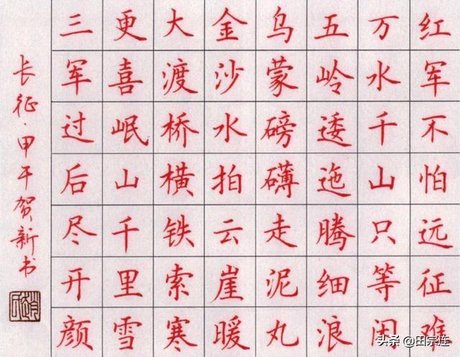 红军不怕远征难
万水千山只等闲
五岭逶迤腾细浪
乌蒙磅礴走泥丸
金沙水拍云崖暖
大渡桥横铁索寒
更喜岷山千里雪
三军过后尽开颜
长征·甲午贺新书
头条